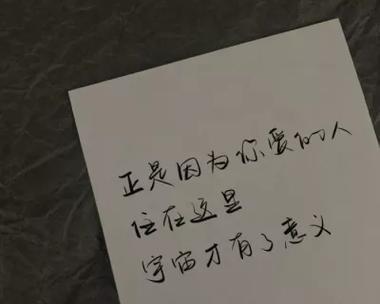 正是因为你爱的人
住在这里
宇宙才有了意义